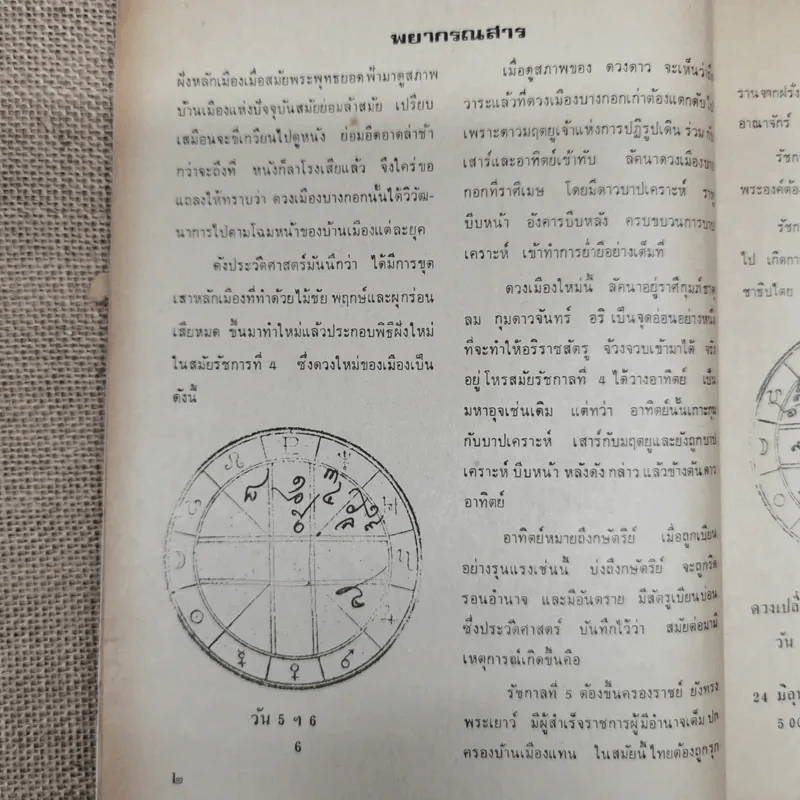 พยากรณสาร
ฝังหลักเมืองเมื่อสมัยพระพุทธยอดฟ้ามาดูสภาพ
บ้านเมืองแห่งปัจจุบันสมัยย่อมล้าสมัย เปรียบ
เสมือนจะขี่เกวียนไปดูหนัง ย่อมอืดอาดล่าช้า
กว่าจะถึงที่ หนังก็ลาโรงเสียแล้ว จึงใคร่ขอ
แถลงให้ทราบว่า ดวงเมืองบางกอกนั้นได้วิวัฒ-
นาการไปตามโฉมหน้าของบ้านเมืองแต่ละยุค
ดังประวัติศาสตร์มันนึกว่า ได้มีการขุด
เสาหลักเมืองที่ทำด้วยไม้ชัย พฤกษ์และผุกร่อน
เสียหมด ขึ้นมาทำใหม่แล้วประกอบพิธีฝังใหม่
ในสมัยรัชการที่ 4 ซึ่งดวงใหม่ของเมืองเป็น
ดังนี้
วัน 5 ฯ 6
6
๒
เมื่อดูสภาพของ ดวงดาว จะเห็นว่า
วาระแล้วที่ดวงเมืองบางกอกเก่าต้องแตกดับ
เพราะดาวมฤตยูเจ้าแห่งการปฏิรูปเดิน ร่วม
เสาร์และอาทิตย์เข้าทับ ลัคนาดวงเมือง
กอกที่ราศีเมษ โดยมีดาวบาปเคราะห์ ราหู
บีบหน้า อังคารบีบหลัง ครบขบวนการบาป
เคราะห์ เข้าทำการย่ำยีอย่างเต็มที่
ดวงเมืองใหม่นี้ ลัคนาอยู่ราศีกุมภ์ธาตุ
ลม กุมดาวจันทร์ อริ เป็นจุดอ่อนอย่างหนึ่ง
ที่จะทำให้อริราชสัตรู จ้วงจวบเข้ามาได้ จริง
อยู่ โหรสมัยรัชกาลที่ 4 ได้วางอาทิตย์ เป็น
มหาอุจเช่นเดิม แต่ทว่า อาทิตย์นั้นเกาะกุม
กับบาปเคราะห์ เสาร์กับมฤตยูและยังถูกบาป
เคราะห์ บีบหน้า หลังดัง กล่าว แล้วข้างต้นดาว
อาทิตย์
อาทิตย์หมายถึงกษัตริย์ เมื่อถูกเบียน
อย่างรุนแรงเช่นนี้ บ่งถึงกษัตริย์ จะถูกริด
รอนอำนาจ และมีอันตราย มีสัตรูเบียนบ่อน
ซึ่งประวัติศาสตร์ บันทึกไว้ว่า สมัยต่อมามี
เหตุการณ์เกิดขึ้นคือ
รัชกาลที่ 5 ต้องขึ้นครองราชย์ ยังทรง
พระเยาว์ มีผู้สำเร็จราชการผู้มีอำนาจเต็ม ปก
ครองบ้านเมืองแทน ในสมัยนี้ ไทยต้องถูกรุก
รานจากฝรั่ง
อาณาจักร์
รัชก
พระองค์ต้อง
รัชก
ไป เกิดการ
ชาธิปไตย
วัน
24 มิถุน